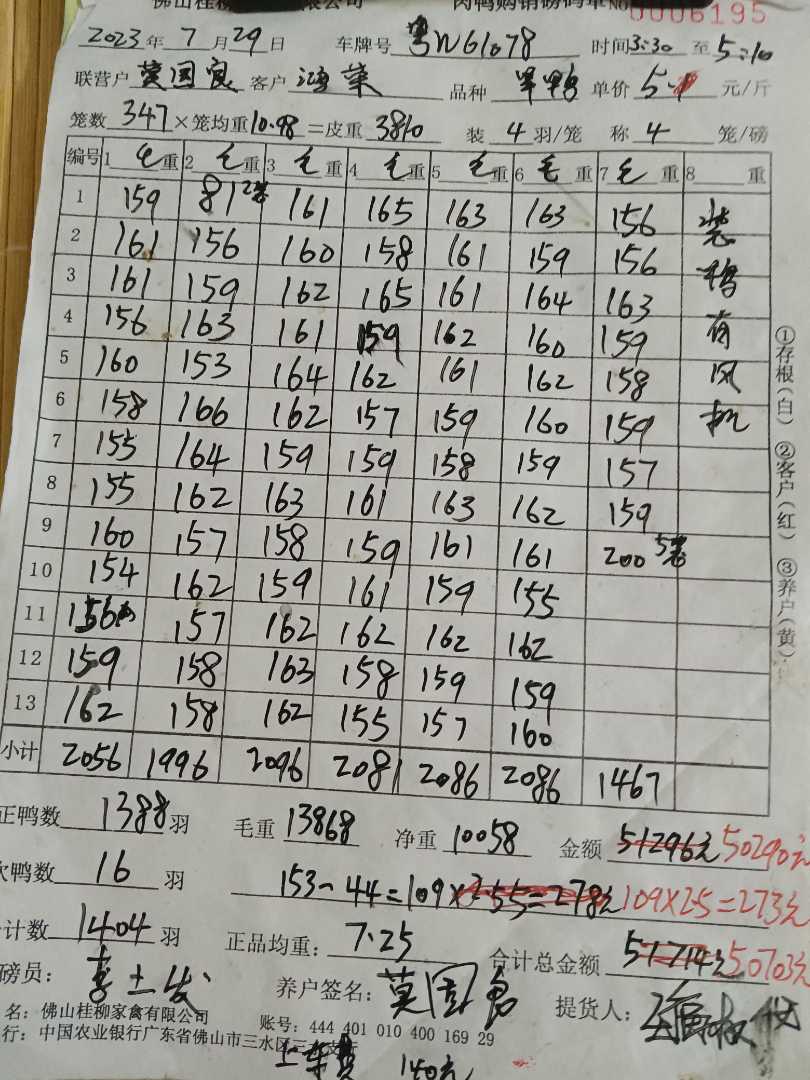 佛山桂柳 限公司 肉鸭购销磅码单 No 0006195
2023年7月29日 车牌号 粤W61078 时间3:30至5:10
联营户 莫国良 客户 鸿業 品种 单价 5. 元/斤
笼数 347 ×笼均重 10.98 =皮重 3810 装 4 羽/笼 称 4 笼/磅
编号 1 毛重 2 毛重 3 毛重 4 毛重 5 毛重 6 毛重 7 毛重 8 重
1 159 81 2笼 161 165 163 163 156 装
2 161 156 160 158 161 159 156 鸭
3 161 159 162 165 161 164 163 有
4 156 163 161 159 162 160 159 风
5 160 153 164 162 161 162 158 机
6 158 166 162 157 159 160 159
7 155 164 159 159 158 159 157
8 155 162 163 161 163 162 159
9 160 157 158 159 161 161 200 5笼
10 154 162 159 161 159 155
11 156 157 162 162 162 162
12 159 158 163 158 159 159
13 162 158 162 155 157 160
小计 2056 1996 2096 2081 2086 2086 1467
正鸭数 1388 羽 毛重 13868 净重 10058 金额 51296元 50290元
次鸭数 16 羽 153-44=109×2.55=278元 109×2.5=273元
计数 1404 羽 正品均重: 7.25 合计总金额 51714元 50703元
磅员: 养户签名: 莫国良 提货人:
名: 佛山桂柳家禽有限公司 账号: 444 401 010 400 169 29
行: 中国农业银行广东省佛山市三水区三 支行
上车费 140元
①存根(白) ②客户(红) ③养户(黄)